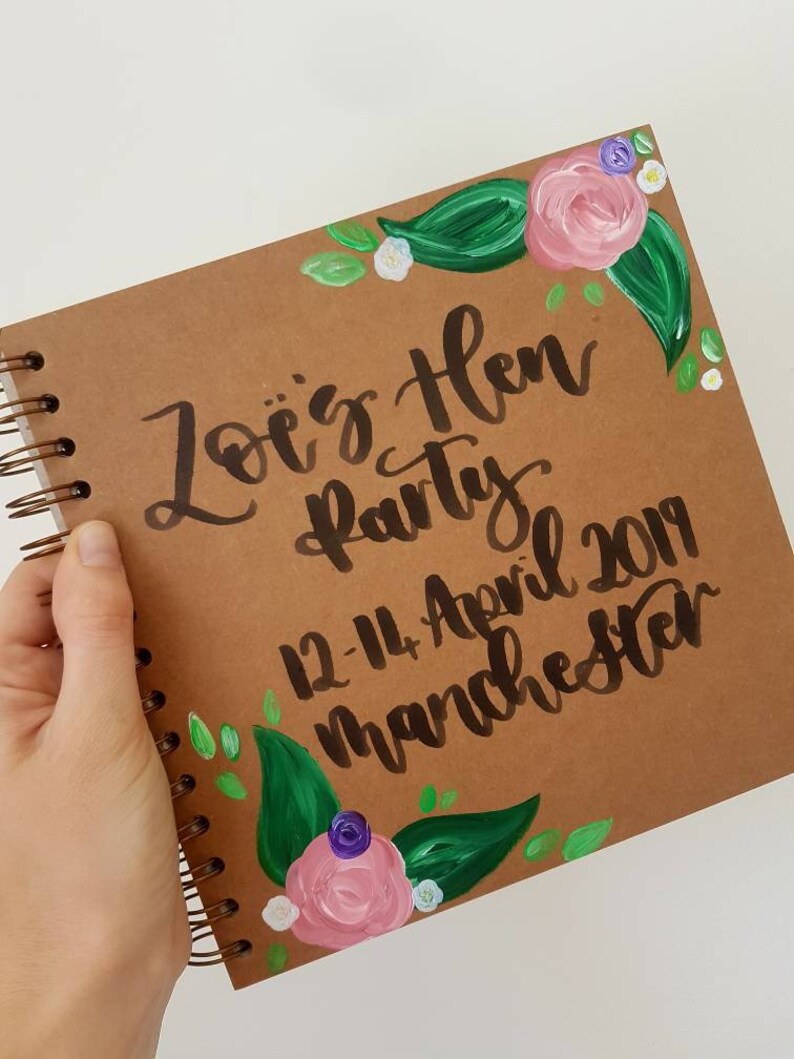 Zoë's Hen
Party
12-14 April 2019
Manchester